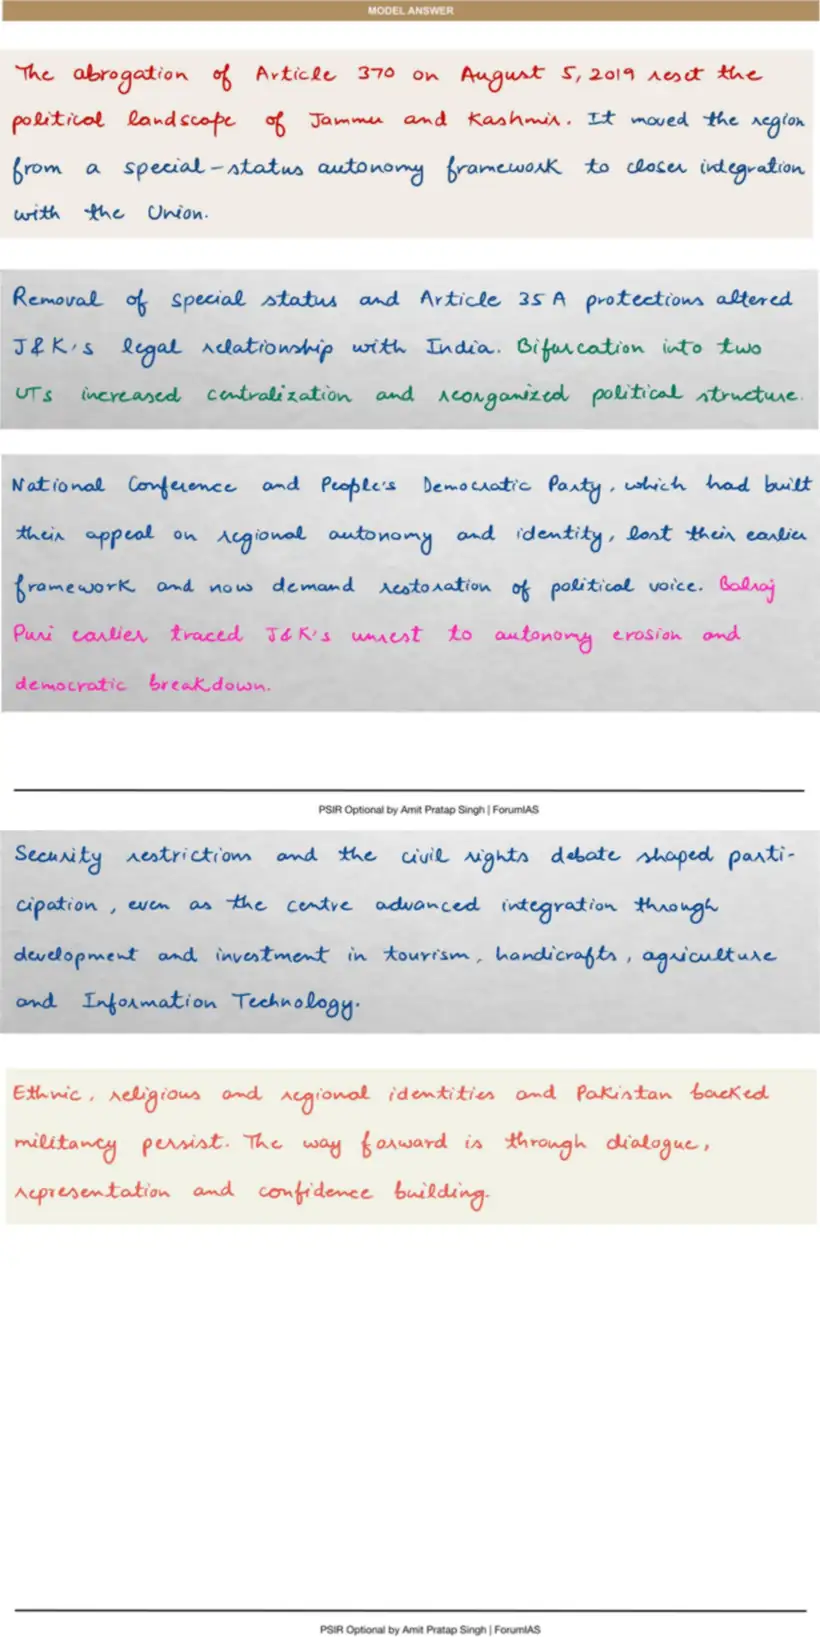 MODEL ANSWER
The abrogation of Article 370 on August 5, 2019 reset the
political landscape of Jammu and Kashmir. It moved the region
from a special-status autonomy framework to closer integration
with the Union.
Removal of special status and Article 35A protections altered
J&K's legal relationship with India. Bifurcation into two
UTs increased centralization and reorganized political structure.
National Conference and People's Democratic Party, which had built
their appeal on regional autonomy and identity, lost their earlier
framework and now demand restoration of political voice. Balraj
Puri earlier traced J&K's unrest to autonomy erosion and
democratic breakdown.
PSIR Optional by Amit Pratap Singh | ForumIAS
Security restrictions and the civil rights debate shaped parti-
cipation, even as the centre advanced integration through
development and investment in tourism, handicrafts, agriculture
and Information Technology.
Ethnic, religious and regional identities and Pakistan backed
militancy persist. The way forward is through dialogue,
representation and confidence building.
PSIR Optional by Amit Pratap Singh | ForumIAS